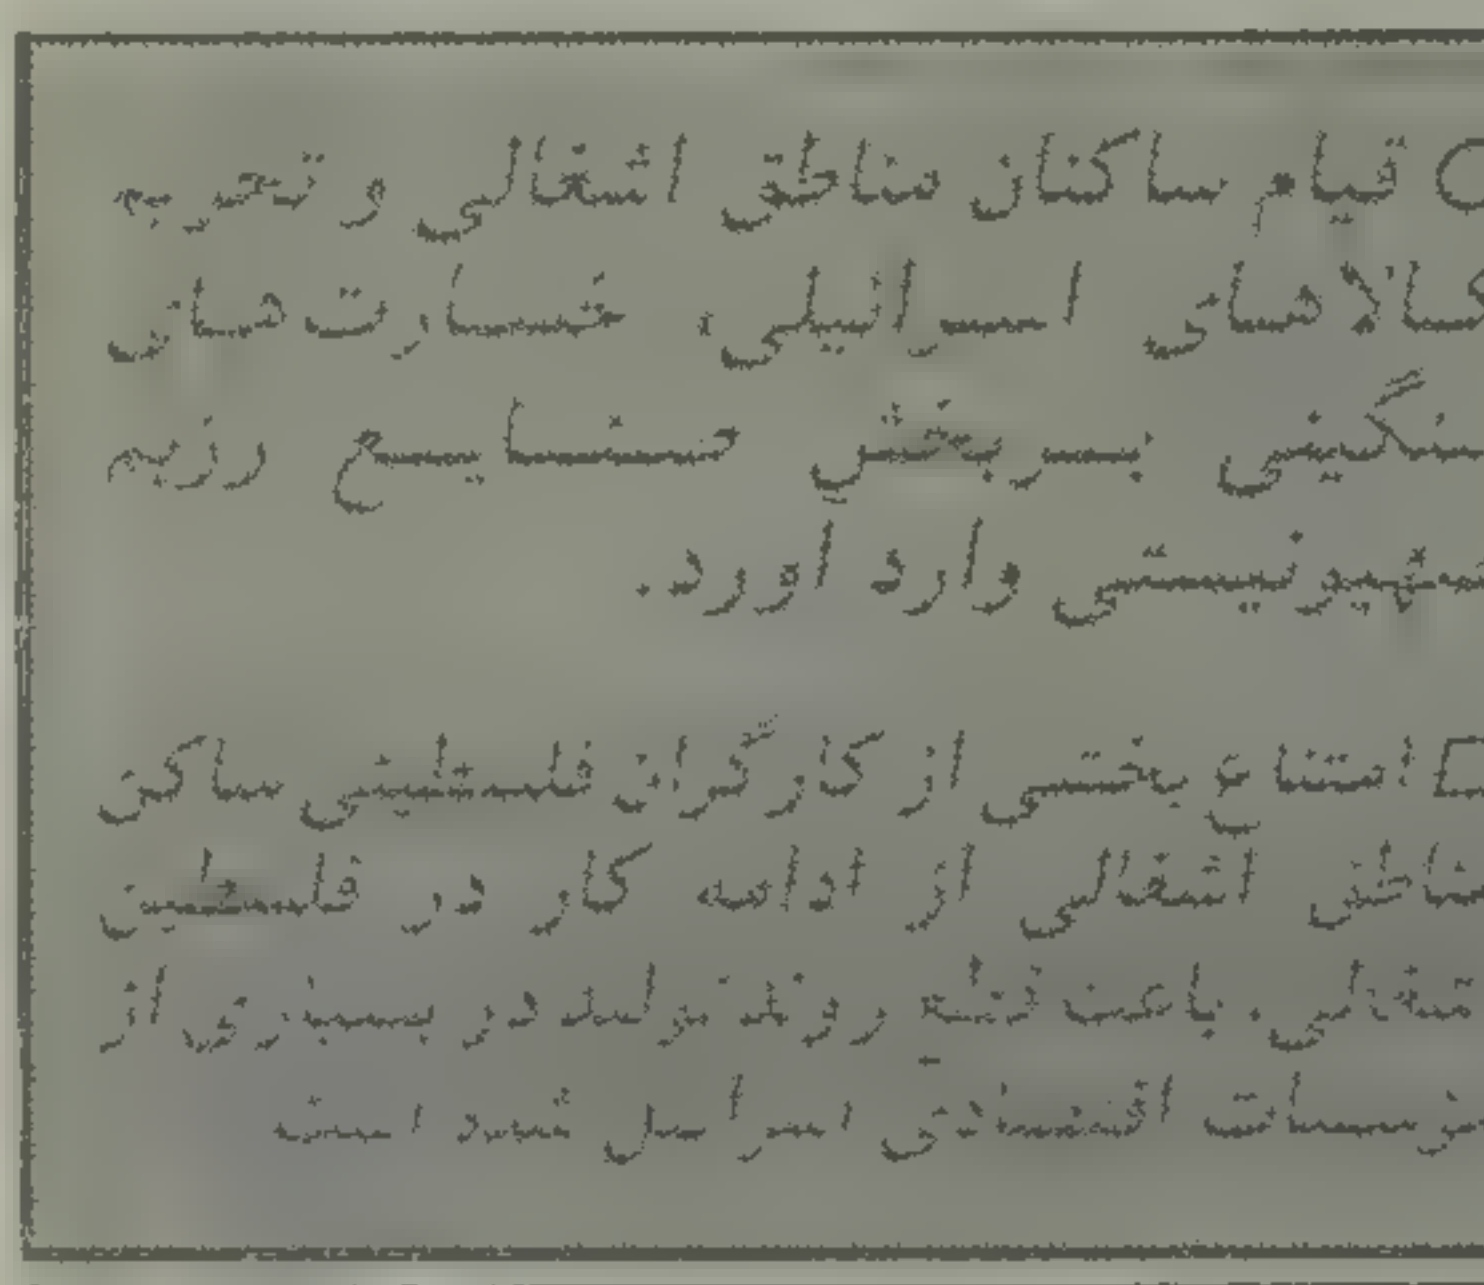 ○ قیام ساکنان مناطق اشغالی و تحریم
کالاهای اسرائیلی، خسارت‌های
سنگینی بر بخش صنایع رژیم
صهیونیستی وارد آورد.
□ امتناع بخشی از کارگران فلسطینی ساکن
مناطق اشغالی از ادامه کار در فلسطین
اشغالی، باعث قطع روند تولید در بسیاری از
موسسات اقتصادی اسرائیل شده است